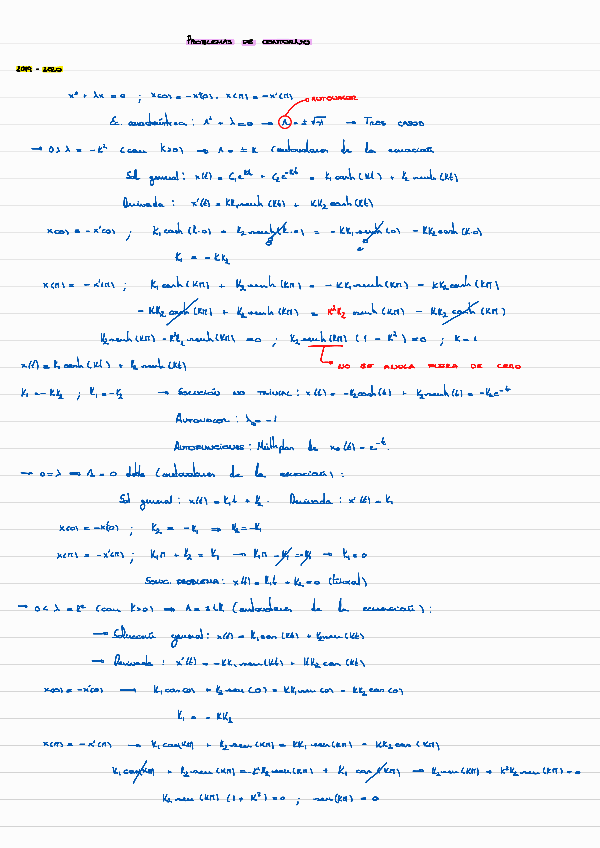 PROBLEMAS DE CONTORNO
2019 - 2020
x'' + λx = 0 ; x(0) = -x'(0), x(π) = -x'(π)
AUTOVALOR
Ec. característica: Λ² + λ = 0 → Λ = ± √-λ → TRES CASOS
→ 0 > λ = -K² (con K>0) → Λ = ± K (autovalores de la ecuación)
Sol general: x(t) = C₁e^Kt + C₂e^-Kt = K₁ cosh(Kt) + K₂ senh(Kt)
Derivada: x'(t) = KK₁ senh(Kt) + KK₂ cosh(Kt)
x(0) = -x'(0) ; K₁ cosh(K·0) + K₂ senh(K·0) = -KK₁ senh(0) - KK₂ cosh(K·0)
K₁ = -KK₂
x(π) = -x'(π) ; K₁ cosh(Kπ) + K₂ senh(Kπ) = -KK₁ senh(Kπ) - KK₂ cosh(Kπ)
-KK₂ cosh(Kπ) + K₂ senh(Kπ) = K²K₂ senh(Kπ) - KK₂ cosh(Kπ)
K₂ senh(Kπ) - K²K₂ senh(Kπ) = 0 ; K₂ senh(Kπ) (1 - K²) = 0 ; K = 1
x(t) = K₁ cosh(Kt) + K₂ senh(Kt)
NO SE ANULA FUERA DE CERO
K₁ = -KK₂ ; K₁ = -K₂ → SOLUCIÓN NO TRIVIAL: x(t) = -K₂cosh(t) + K₂senh(t) = -K₂e^-t
AUTOVALOR: λ₀ = -1
AUTOFUNCIONES: Múltiplos de x₀(t) = e^-t.
→ 0 = λ → Λ = 0 doble (autovalores de la ecuación):
Sol general: x(t) = K₁t + K₂. Derivada: x'(t) = K₁
x(0) = -x'(0) ; K₂ = -K₁ ⇒ K₂ = -K₁
x(π) = -x'(π) ; K₁π + K₂ = K₁ → K₁π - K₁ = -K₁ → K₁ = 0
SOLUC. PROBLEMA: x(t) = K₁t + K₂ = 0 (trivial)
→ 0 < λ = K² (con K>0) → Λ = ± iK (autovalores de la ecuación):
→ Solución general: x(t) = K₁cos(Kt) + K₂sen(Kt)
→ Derivada: x'(t) = -KK₁ sen(Kt) + KK₂ cos(Kt)
x(0) = -x'(0) → K₁ cos(0) + K₂ sen(0) = KK₁ sen(0) - KK₂ cos(0)
K₁ = -KK₂
x(π) = -x'(π) → K₁ cos(Kπ) + K₂ sen(Kπ) = KK₁ sen(Kπ) - KK₂ cos(Kπ)
K₁ cos(Kπ) + K₂ sen(Kπ) = -K²K₂ sen(Kπ) + K₁ cos(Kπ) → K₂ sen(Kπ) + K²K₂ sen(Kπ) = 0
K₂ sen(Kπ) (1 + K²) = 0 ; sen(Kπ) = 0